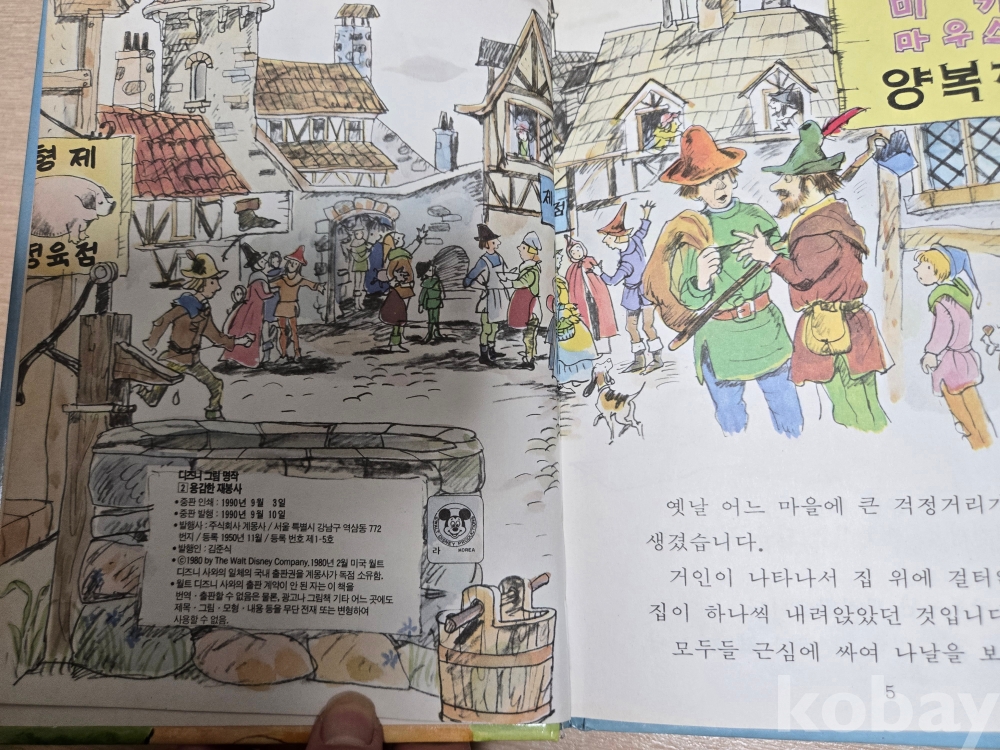 형 제
육점
제
점
마우
양복
디즈니 그림 명작
2 용감한 재봉사
• 중판 인쇄 : 1990년 9월 3일
• 중판 발행 : 1990년 9월 10일
• 발행사 : 주식회사 계몽사 / 서울 특별시 강남구 역삼동 772
번지 / 등록 1950년 11월 / 등록 번호 제1-5호
• 발행인 : 김준식
• ⓒ1980 by The Walt Disney Company, 1980년 2월 미국 월트
디즈니 사와의 일체의 국내 출판권을 계몽사가 독점 소유함.
• 월트 디즈니 사와의 출판 계약이 안 된 자는 이 책을
번역·출판할 수 없음은 물론, 광고나 그림책 기타 어느 곳에도
제목·그림·모형·내용 등을 무단 전재 또는 변형하여
사용할 수 없음.
라 KOREA
옛날 어느 마을에 큰 걱정거리가
생겼습니다.
거인이 나타나서 집 위에 걸터
집이 하나씩 내려앉았던 것입니다
모두들 근심에 싸여 나날을 보
5
kobay